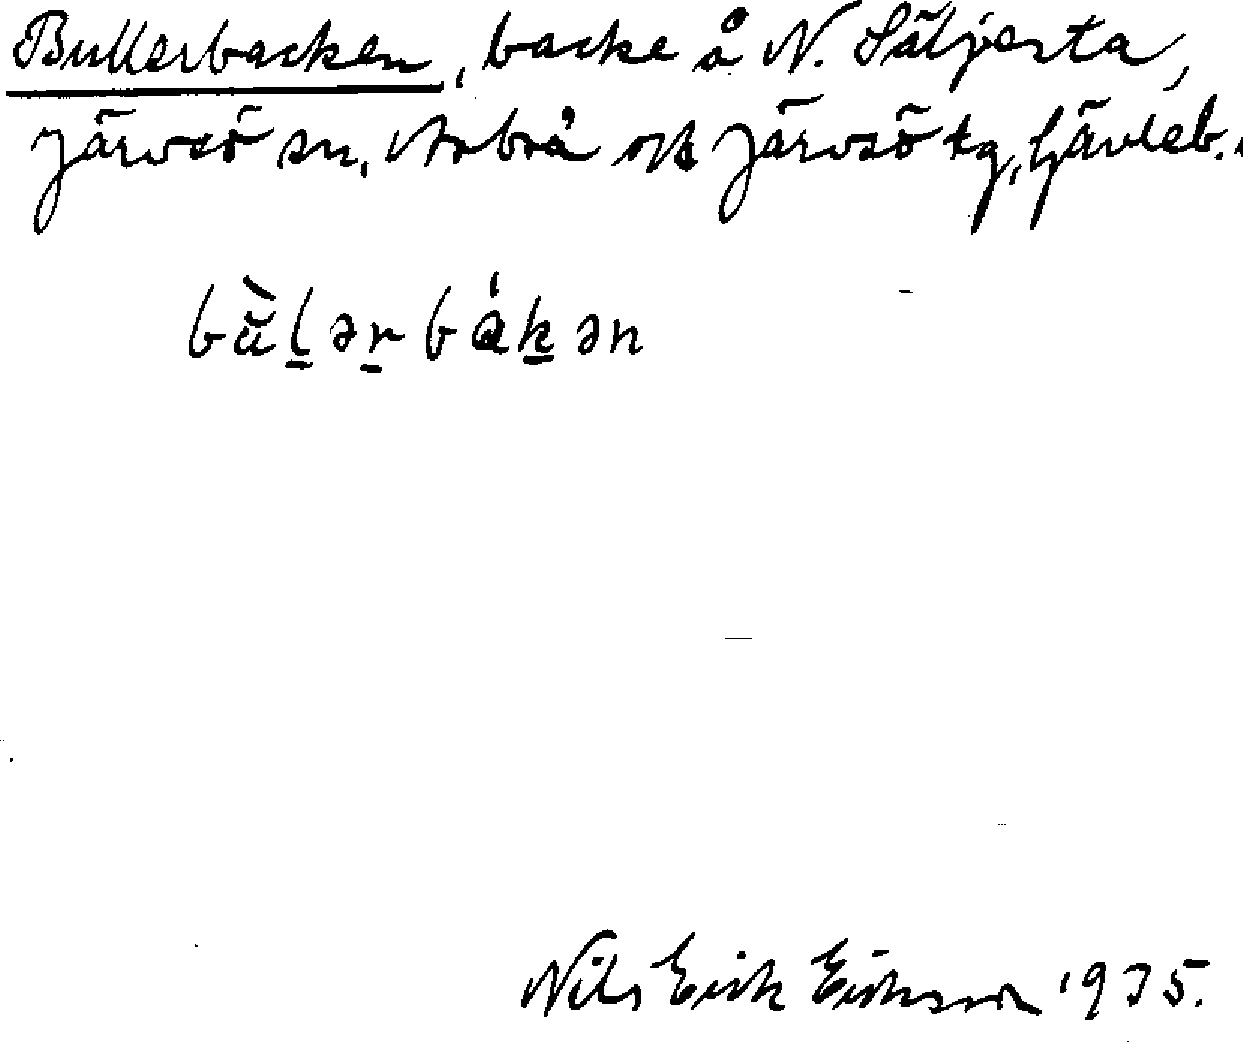 Bullerbacken, backe å N. Säljesta,
Järvsö sn, Arbrå och Järvsö tg, Gävleb.
bu̇̀l̲ər̲bȧk̲ən
Nils Erik Eriksson 1935.